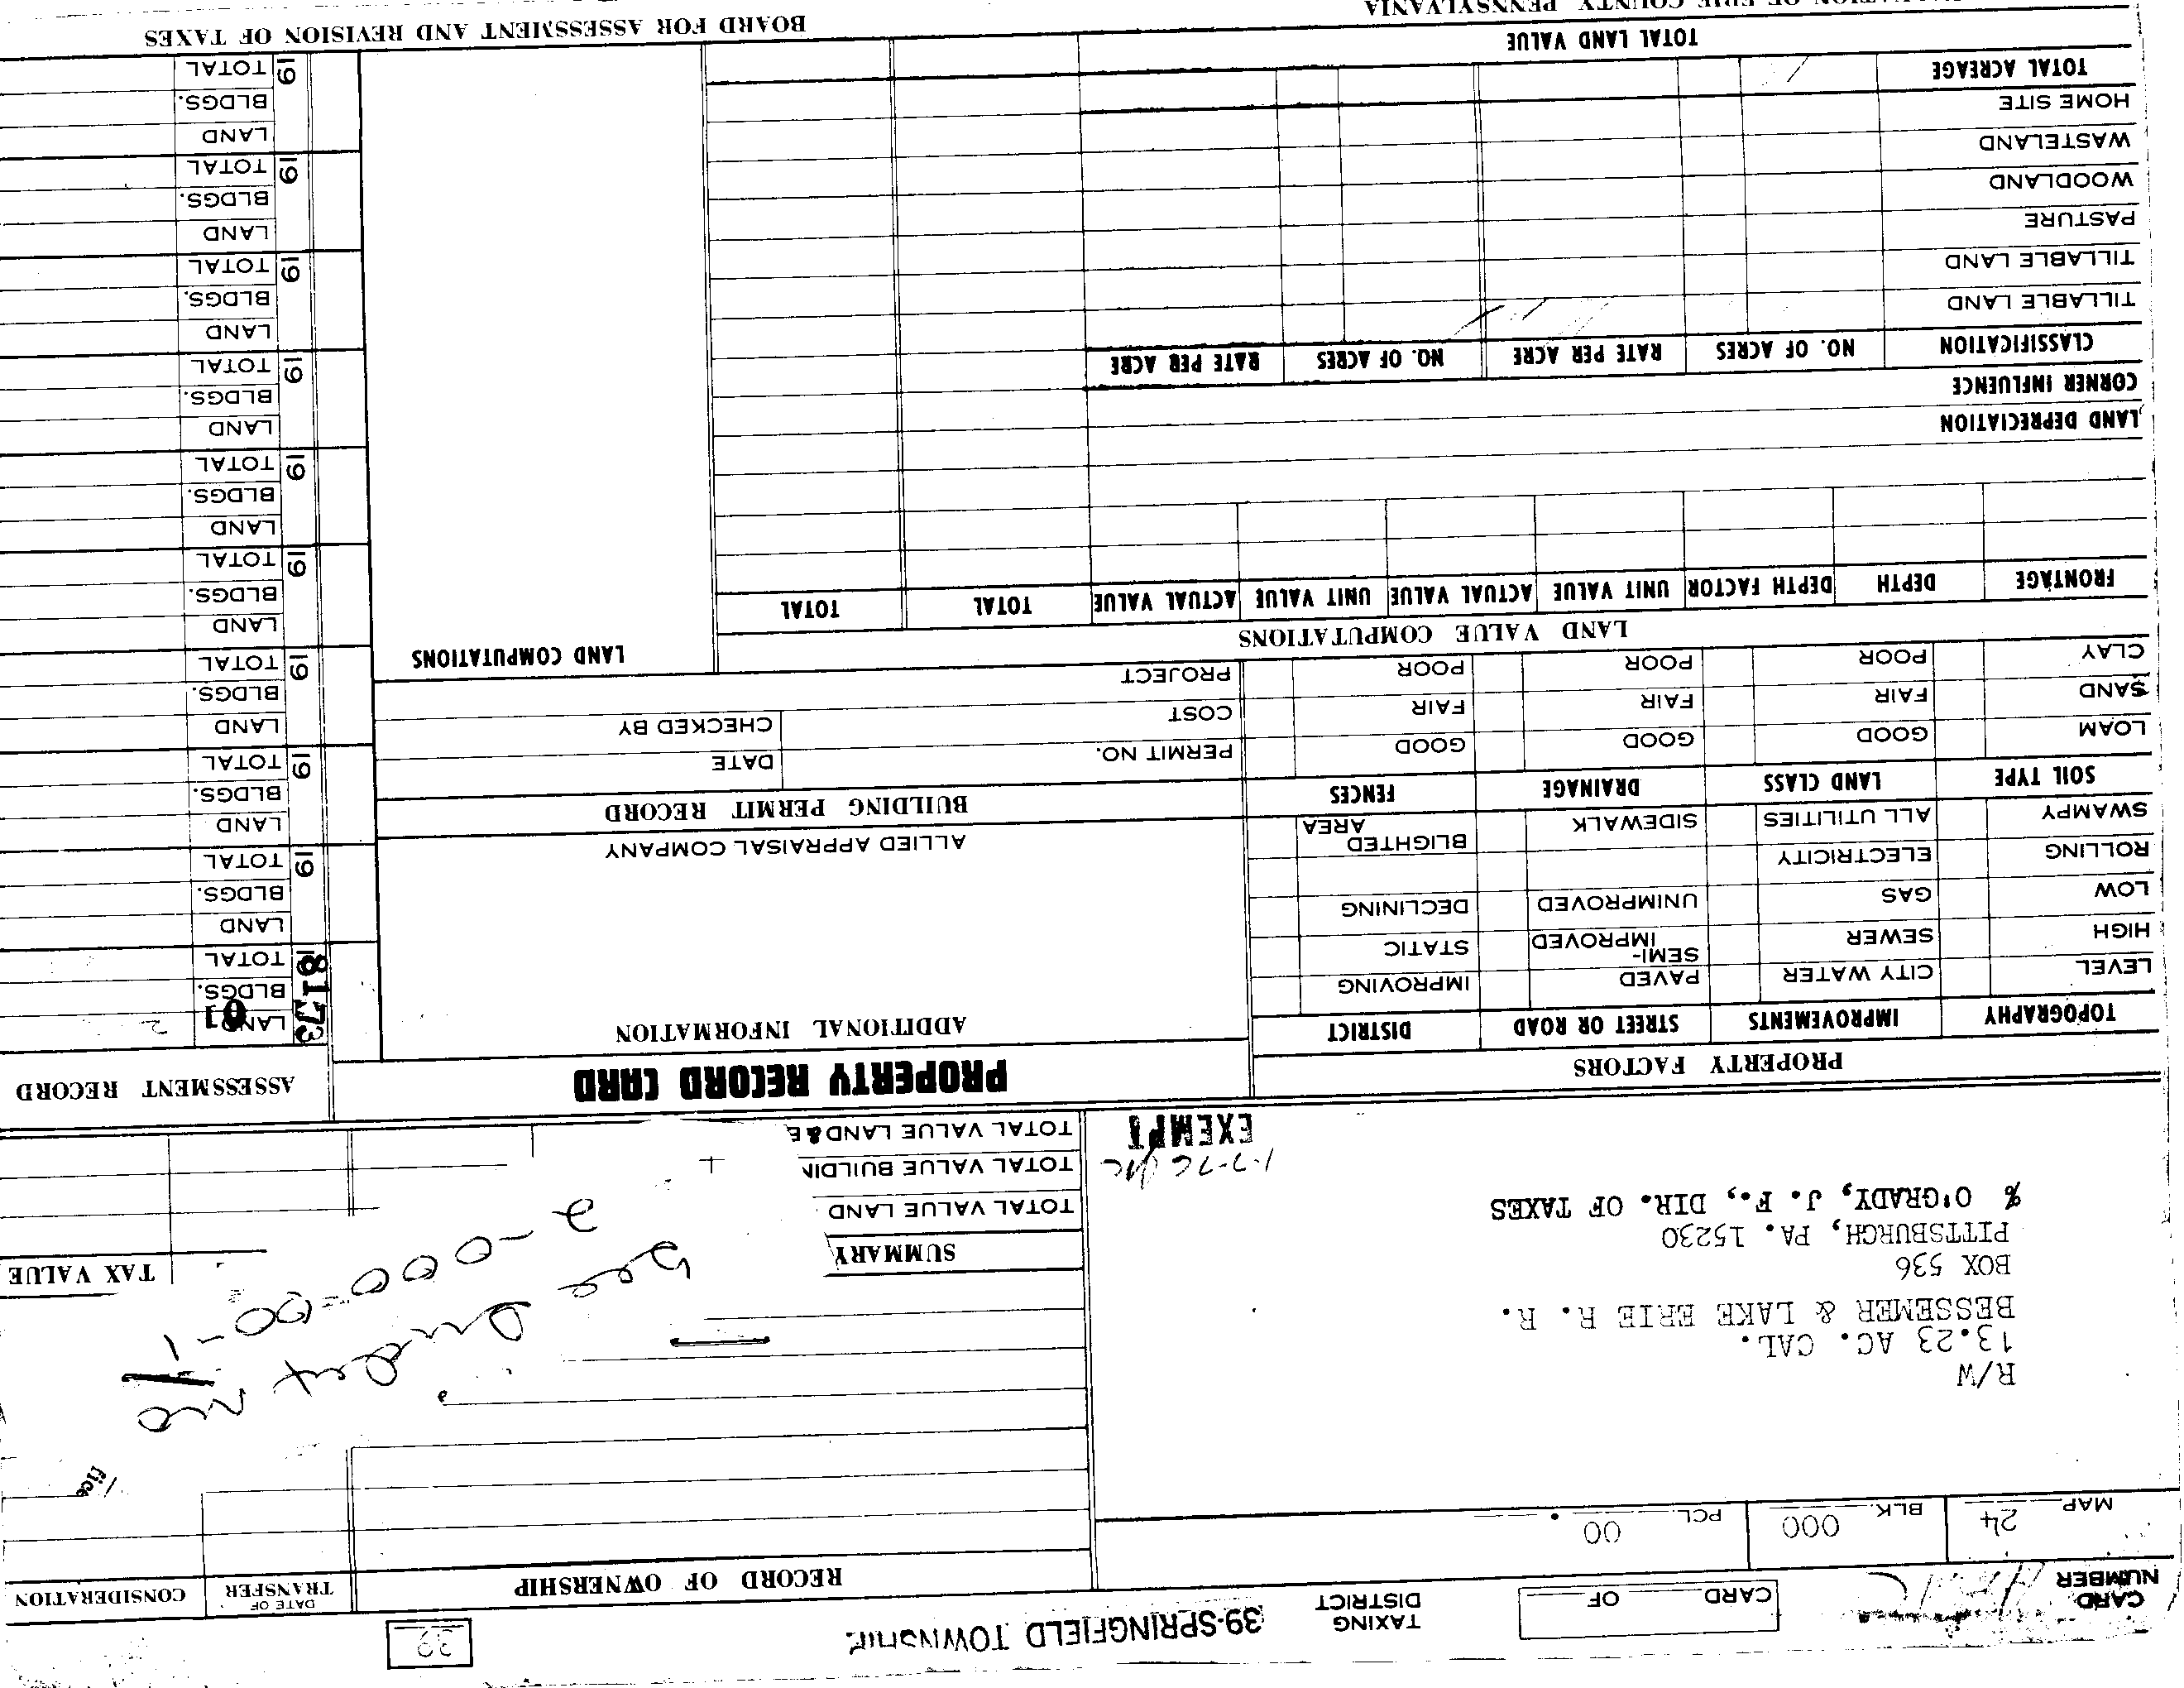 CARD NUMBER
CARD OF
TAXING DISTRICT
39-SPRINGFIELD TOWNSHIP
39
MAP 24
BLK. 000
PCL. 00
RECORD OF OWNERSHIP
DATE OF TRANSFER
CONSIDERATION
R/W
13.23 AC. CAL.
BESSEMER & LAKE ERIE R. R.
BOX 536
PITTSBURGH, PA. 15230
% O'GRADY, J. F., DIR. OF TAXES
1-7-76
EXEMPT
fice
See
Index
2-000-00-1
SUMMARY
TAX VALUE
TOTAL VALUE LAND
TOTAL VALUE BUILDIN
TOTAL VALUE LAND &
PROPERTY FACTORS
PROPERTY RECORD CARD
ASSESSMENT RECORD
TOPOGRAPHY IMPROVEMENTS STREET OR ROAD DISTRICT
LEVEL CITY WATER PAVED IMPROVING
HIGH SEWER SEMI-IMPROVED STATIC
LOW GAS UNIMPROVED DECLINING
ROLLING ELECTRICITY BLIGHTED AREA
SWAMPY ALL UTILITIES SIDEWALK
SOIL TYPE LAND CLASS DRAINAGE FENCES
LOAM GOOD GOOD GOOD
SAND FAIR FAIR FAIR
CLAY POOR POOR POOR
ADDITIONAL INFORMATION
ALLIED APPRAISAL COMPANY
BUILDING PERMIT RECORD
PERMIT NO. DATE
COST CHECKED BY
PROJECT
LAND VALUE COMPUTATIONS
LAND COMPUTATIONS
FRONTAGE DEPTH DEPTH FACTOR UNIT VALUE ACTUAL VALUE UNIT VALUE ACTUAL VALUE TOTAL TOTAL
LAND DEPRECIATION
CORNER INFLUENCE
CLASSIFICATION NO. OF ACRES RATE PER ACRE NO. OF ACRES RATE PER ACRE
TILLABLE LAND
TILLABLE LAND
PASTURE
WOODLAND
WASTELAND
HOME SITE
TOTAL ACREAGE
TOTAL LAND VALUE
8173
LAND
BLDGS.
TOTAL
19
LAND
BLDGS.
TOTAL
19
LAND
BLDGS.
TOTAL
19
LAND
BLDGS.
TOTAL
19
LAND
BLDGS.
TOTAL
19
LAND
BLDGS.
TOTAL
19
LAND
BLDGS.
TOTAL
19
LAND
BLDGS.
TOTAL
19
LAND
BLDGS.
TOTAL
19
LAND
BLDGS.
TOTAL
OF ERIE COUNTY PENNSYLVANIA
BOARD FOR ASSESSMENT AND REVISION OF TAXES